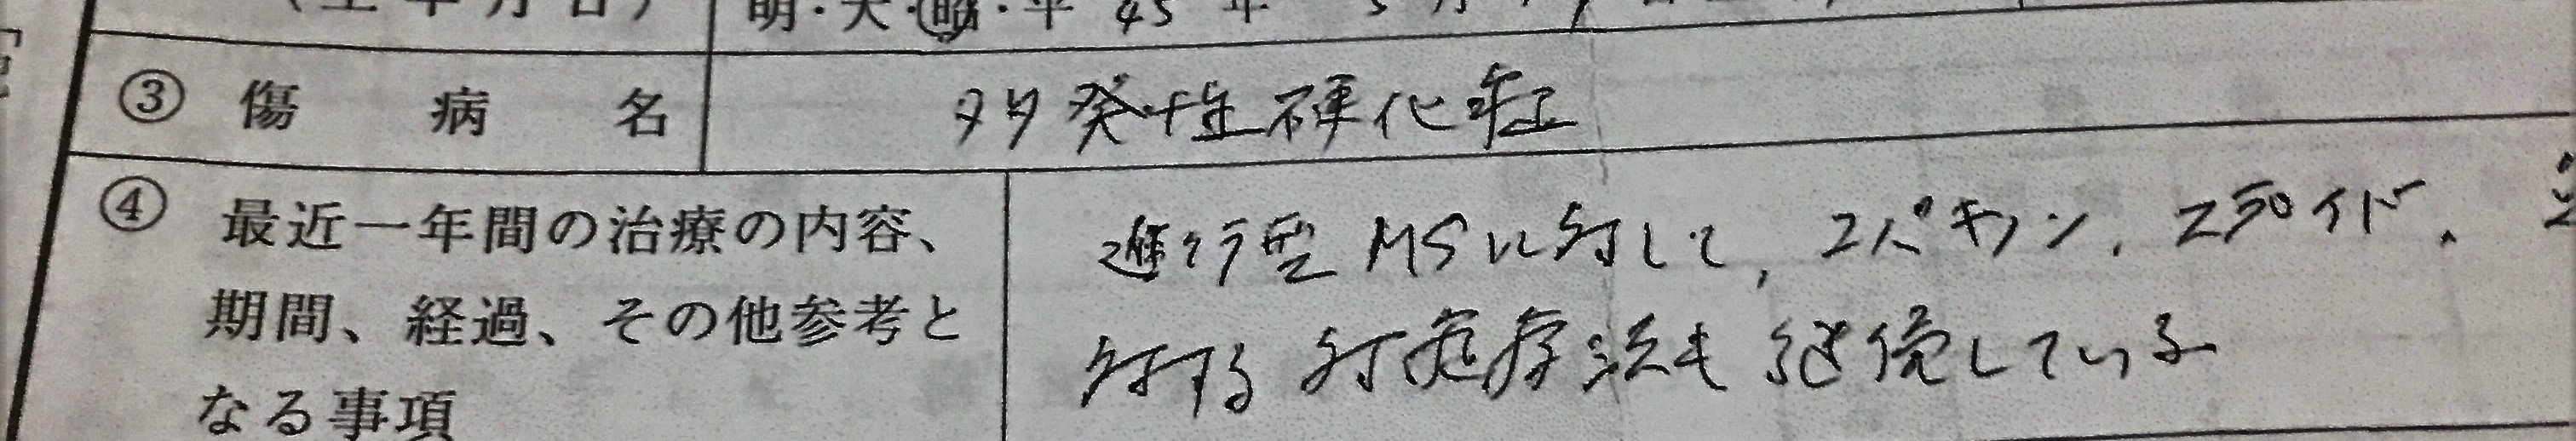 明・大・昭・平 45年 5月
③ 傷病名 多発性硬化症
④ 最近一年間の治療の内容、 進行型MSに対して, コパキソン, ステロイド,
期間、経過、その他参考と 対する対症療法も継続している
なる事項